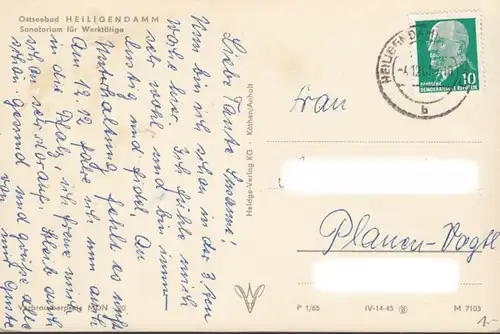 Ostseebad HEILIGENDAMM
Sanatorium für Werktätige
Liebe Tante Susanne!
Nun bin ich schon in der 3. Kur
woche hier. Ich fühle mich
sehr wohl und bin immer
lustig und fidel. An
Unterhaltung fehlt es nicht.
Am 12.12 fahre ich nun auch
in die Pfalz, ich freue mich
schon sehr darauf. Bleib auch
schön gesund und grüße alle
von mir
Verbraucherpreis MDN
Heldge-Verlag KG · Köthen/Anhalt
HEILIGENDAMM
b
10
DEUTSCHE
DEMOKRATISCHE REPUBLIK
Frau
Plauen-Vogtl
P 1/65 IV-14-45 M 7103